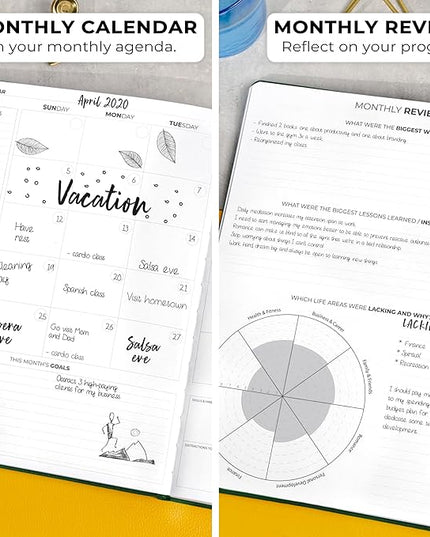 ONTHLY CALENDAR
your monthly agenda.
April 2020
SUNDAY MONDAY TUESDAY
5 6 7
Vacation
12 13 14
Have
- cardio class
Salsa eve
19 20 21
Spanish class
Visit hometown
25 26 27
Go visit Mom
and Dad
- cardio class
Salsa
eve
THIS MONTH'S GOALS
3 high-paying
clients for my business
MONTHLY REVIE
Reflect on your prog
MONTHLY REVIE
WHAT WERE THE BIGGEST W
- Finished 2 books: one about productivity and one about branding.
- Went to the gym 3x a week.
- Reorganized my class
WHAT WERE THE BIGGEST LESSONS LEARNED / INS
Daily meditation increases my attention span at work.
I need to start managing my emotions better to be able to prevent reactive
Romance can make us blind to all the signs that we're in a bad relationship.
Stop worrying about things I can't control.
Work hard, dream big and always be open to learning new things.
WHICH LIFE AREAS WERE LACKING AND WHY?
LACKIN
* Finance
* Spiritual
* Recreation
I should pay mo
to my spending
budget plan for
dedicate some
development.
Health & Fitness
Business & Career
Family & Friends
Romance
Personal Development
Finance